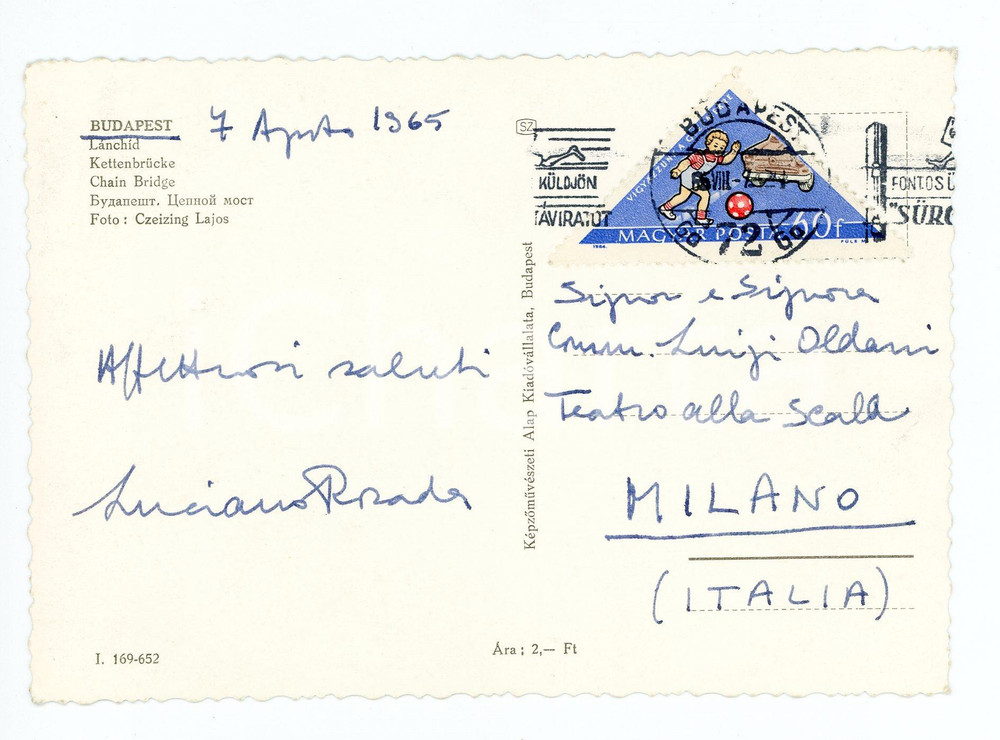 BUDAPEST 7 Agosto 1965
Lánchíd
Kettenbrücke
Chain Bridge
Будапешт. Цепной мост
Foto : Czeizing Lajos
Affettuosi saluti
Luciano Rosada
I. 169-652
Képzőművészeti Alap Kiadóvállalata, Budapest
Ára : 2,— Ft
SZ
KÜLDJÖN
TÁVIRATOT
BUDAPEST
72
MAGYAR POSTA 60f
FONTOS Ü
"SÜRG
Signor e Signora
Comm. Luigi Oldani
Teatro alla Scala
MILANO
(ITALIA)